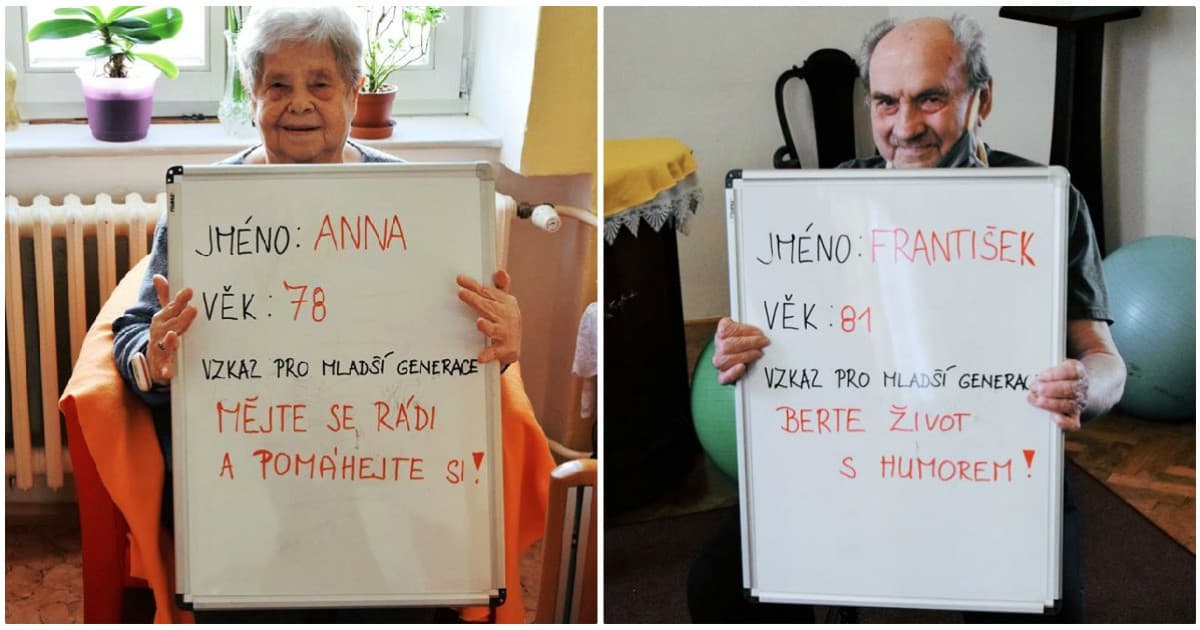 JMÉNO: ANNA
VĚK: 78
VZKAZ PRO MLADŠÍ GENERACE
MĚJTE SE RÁDI
A POMÁHEJTE SI!
JMÉNO: FRANTIŠEK
VĚK: 81
VZKAZ PRO MLADŠÍ GENERAC
BERTE ŽIVOT
S HUMOREM!